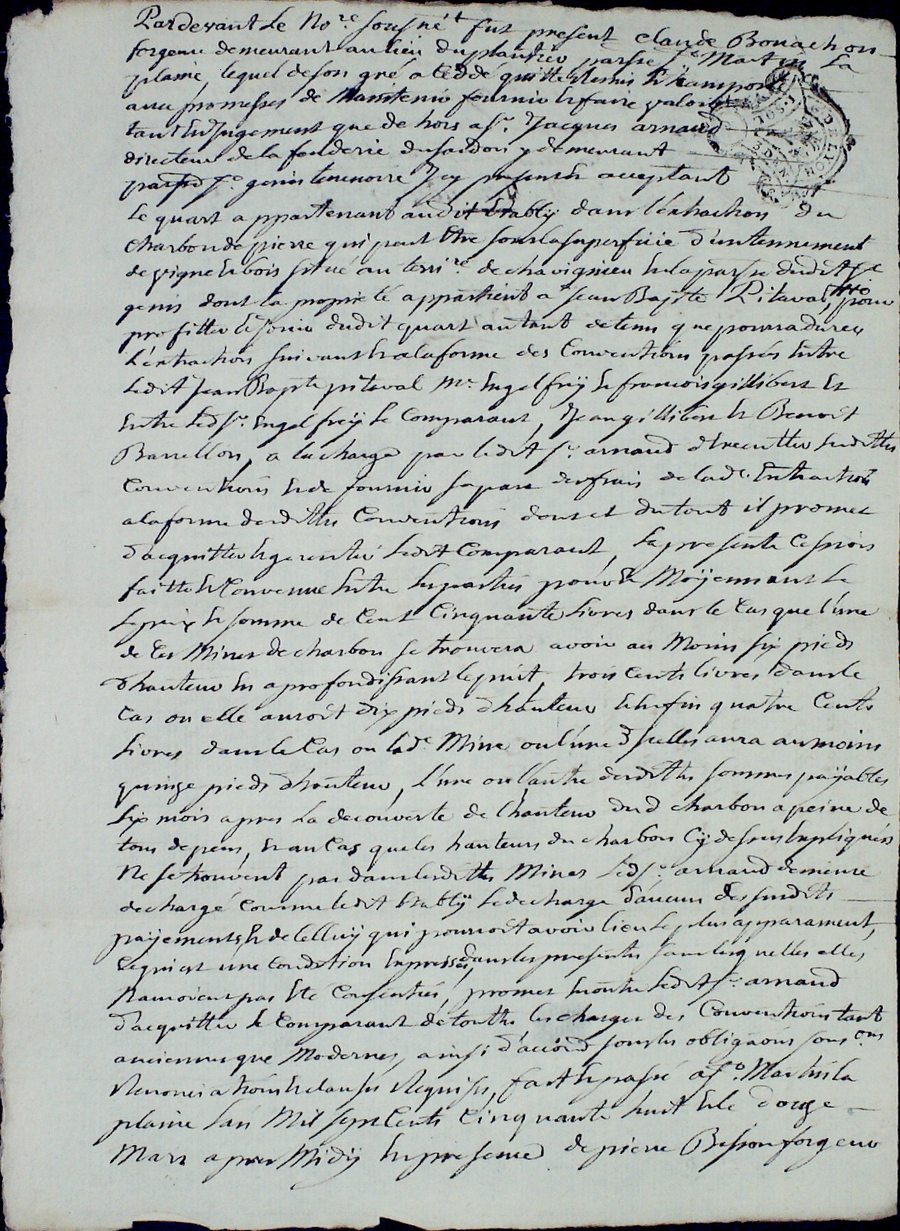 Pardevant Le No.re sousné t fut present Claude Bonachon
forgeur demeurant au lieu du plantier parsse St Martin La
plaine, lequel de son gré a cedé quitté et remis et transporté
avec promesses de Maintenir fournir et faire valoir
tant En Jugement que de hors a Sr. Jacques arnaud
directeur de la fonderie du Sardon y demeurant
parsse St. genis terrenoire Icy present et acceptant
Le quart appartenant audit Etably dans l'extraction du
charbon de pierre qui peut Etre sous la superficie d'un tennement
de vigne et bois situé au terri.re de chavignieu En la parsse dudit St
genis dont la proprieté appartient a Sr Jean Bapte Pitaval, pour
profiter et Jouir dudit quart autant de tems que pourra durer
L'extraction suivant Et a la forme des Conventions passées Entre
ledit Jean Bapte pitaval Mr. Engelfrëy et francois gillibert Et
Entre led Sr. Engelfrëy le Comparant, Jean gillibert Et Benoit
Barrellon, a la charge par ledit Sr. arnaud d'Executter lesdittes
Conventions Et de fournir sa part des frais de lad. Extraction
a la forme desdittes Conventions dont et du tout il promet
d'acquitter Et garentir ledit Comparant, La presente Cession
faitte Et Convenue Entre les parties pour Et Moÿennant Le
le prix Et somme de Cent Cinquante Livres dans le Cas que l'une
de Ces Mines de charbon se trouvera avoir au Moins six pieds
d'hauteur En aprofondissant le puit, trois Cents livres dans le
Cas ou elle auroit dix pieds d'hauteur Et Enfin quatre Cents
Livres dans le Cas ou lad. Mine ou l'une d'Icelles aura au moins
quinze pieds d'hauteur, L'une ou l'autre desdittes sommes paÿables
six mois apres La decouverte de l'hauteur dud charbon a peine de
tous depens, Et au Cas que les hauteurs du charbon Cÿ dessus Expliquées
Ne se trouvent pas dans lesdittes Mines led Sr. arnaud demeure
dechargé comme ledit Etablÿ le decharge d'aucun des susdits
paÿements Et de Celluÿ qui pourroit avoir lieu le plus apparament,
Ce qui est une Condition Expresse dans les presentes sans lesquelles elles
N'auroient pas Eté Consenties, promet Encore ledit Sr. arnaud
d'acquitter le Comparant de touttes les charges des Conventions tant
anciennes que Modernes, ainsi d'accord sous les obligaons sous.ons
Renonciations Et clauses Requises, fait Et passé a St. Martin la
plaine L'an Mil sept Cents Cinquante huit Et le douze
Mars apres Midÿ En presence de pierre Besson forgeur